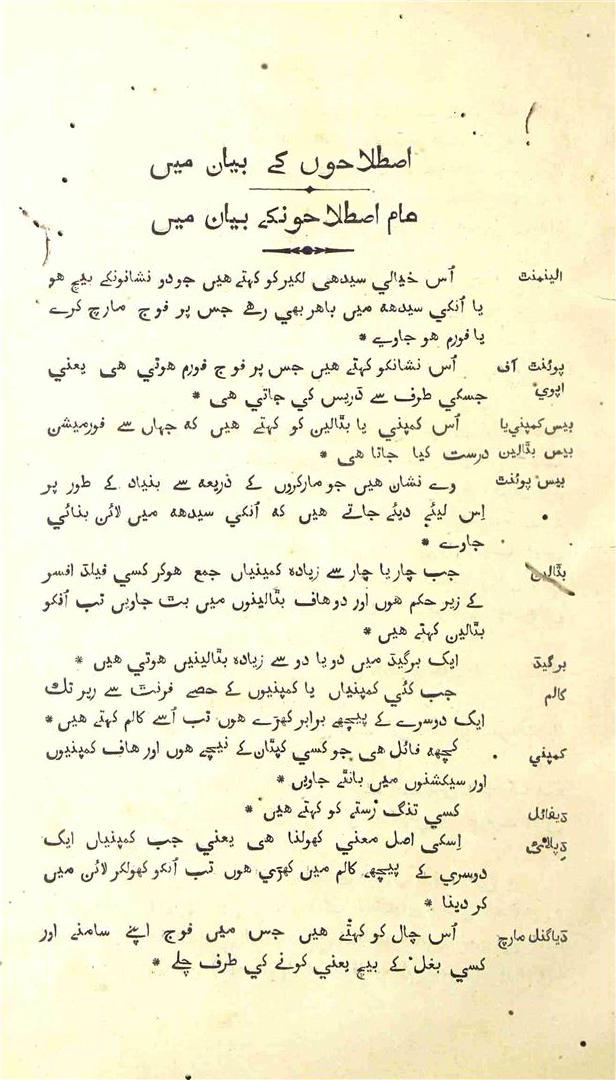 اصطلاحوں کے بیان میں
عام اصطلاحونکے بیان میں
الینمنٹ اُس خیالي سیدھی لکیر کو کہتے ھیں جو دو نشانونکے بیچ ھو
یا اُنکي سیدھہ میں باھر بھي رھے جس پر فوج مارچ کرے
یا فورم ھو جاوے *
پوئنٹ آف اُس نشانکو کہتے ھیں جس پر فوج فورم ھوتي ھی یعني
اپوي جسکي طرف سے ڈریس کي جاتي ھی *
بیس کمپني یا اُس کمپني یا بٹالین کو کہتے ھیں کہ جہاں سے فورمیشن
بیس بٹالین درست کیا جاتا ھی *
بیس پوئنٹ وے نشان ھیں جو مارکروں کے ذریعہ سے بنیاد کے طور پر
اِس لیئے دیئے جاتے ھیں کہ اُنکي سیدھہ میں لائن بنائي
جاوے *
بٹالین جب چار یا چار سے زیادہ کمپنیاں جمع ھوکر کسي فیلڈ افسر
کے زیر حکم ھوں اور دو ھاف بٹالینوں میں بٹ جاویں تب اُنکو
بٹالین کہتے ھیں *
برگیڈ ایک برگیڈ میں دو یا دو سے زیادہ بٹالینیں ھوتي ھیں *
کالم جب کئي کمپنیاں یا کمپنیوں کے حصے فرنٹ سے ریر تک
ایک دوسرے کے پیچھے برابر کھڑے ھوں تب اُسے کالم کہتے ھیں *
کمپني کچھہ فائل ھی جو کسي کپتان کے نیچے ھوں اور ھاف کمپنیوں
اور سیکشنوں میں بانٹے جاویں *
ڈیفائل کسي تنگ رستے کو کہتے ھیں *
ڈپلائي اِسکی اصل معني کھولنا ھی یعني جب کمپنیاں ایک
دوسري کے پیچھے کالم میں کھڑي ھوں تب اُنکو کھولکر لائن میں
کر دینا *
ڈیاگنل مارچ اُس چال کو کہتے ھیں جس میں فوج اپنے سامنے اور
کسي بغل کے بیچ یعني کونے کي طرف چلے *